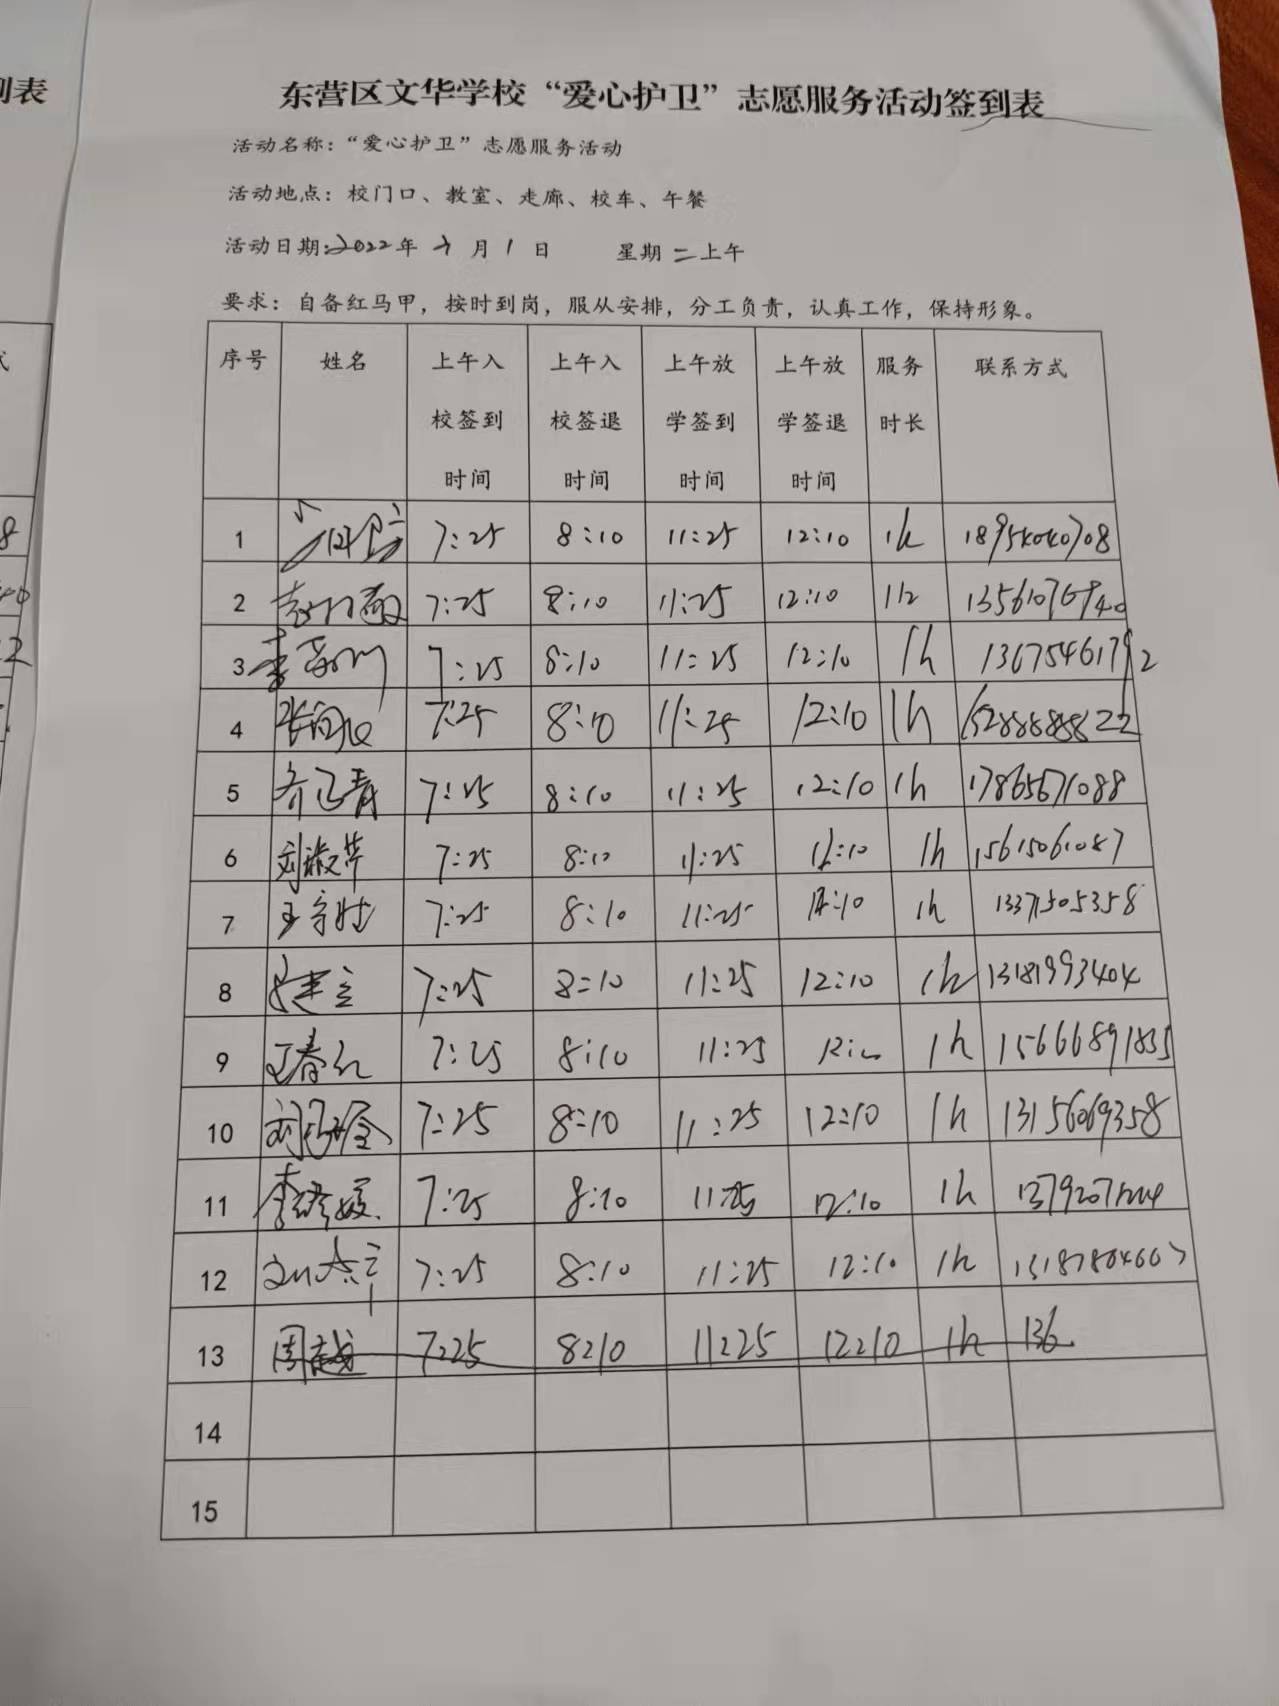 到表
东营区文华学校“爱心护卫”志愿服务活动签到表
活动名称：“爱心护卫”志愿服务活动
活动地点：校门口、教室、走廊、校车、午餐
活动日期:2022年 月1日 星期二上午
要求：自备红马甲，按时到岗，服从安排，分工负责，认真工作，保持形象。
序号 姓名 上午入校签到时间 上午入校签退时间 上午放学签到时间 上午放学签退时间 服务时长 联系方式
1 7:25 8:10 11:25 12:10 1h 18954040708
2 7:25 8:10 11:25 12:10 1h
3 7:25 8:10 11:25 12:10 1h 13675461792
4 7:25 8:10 11:25 12:10 1h
5 7:25 8:10 11:25 12:10 1h 17865671088
6 刘淑华 7:25 8:10 11:25 12:10 1h 15615061087
7 7:25 8:10 11:25 12:10 1h 13371505358
8 7:25 8:10 11:25 12:10 1h 13181993404
9 王春红 7:25 8:10 11:25 1h 15666891835
10 7:25 8:10 11:25 12:10 1h 13156069358
11 7:25 8:10 11:25 12:10 1h
12 7:25 8:10 11:25 12:10 1h
13 周越 7:25 8:10 11:25 12:10 1h 136
14
15